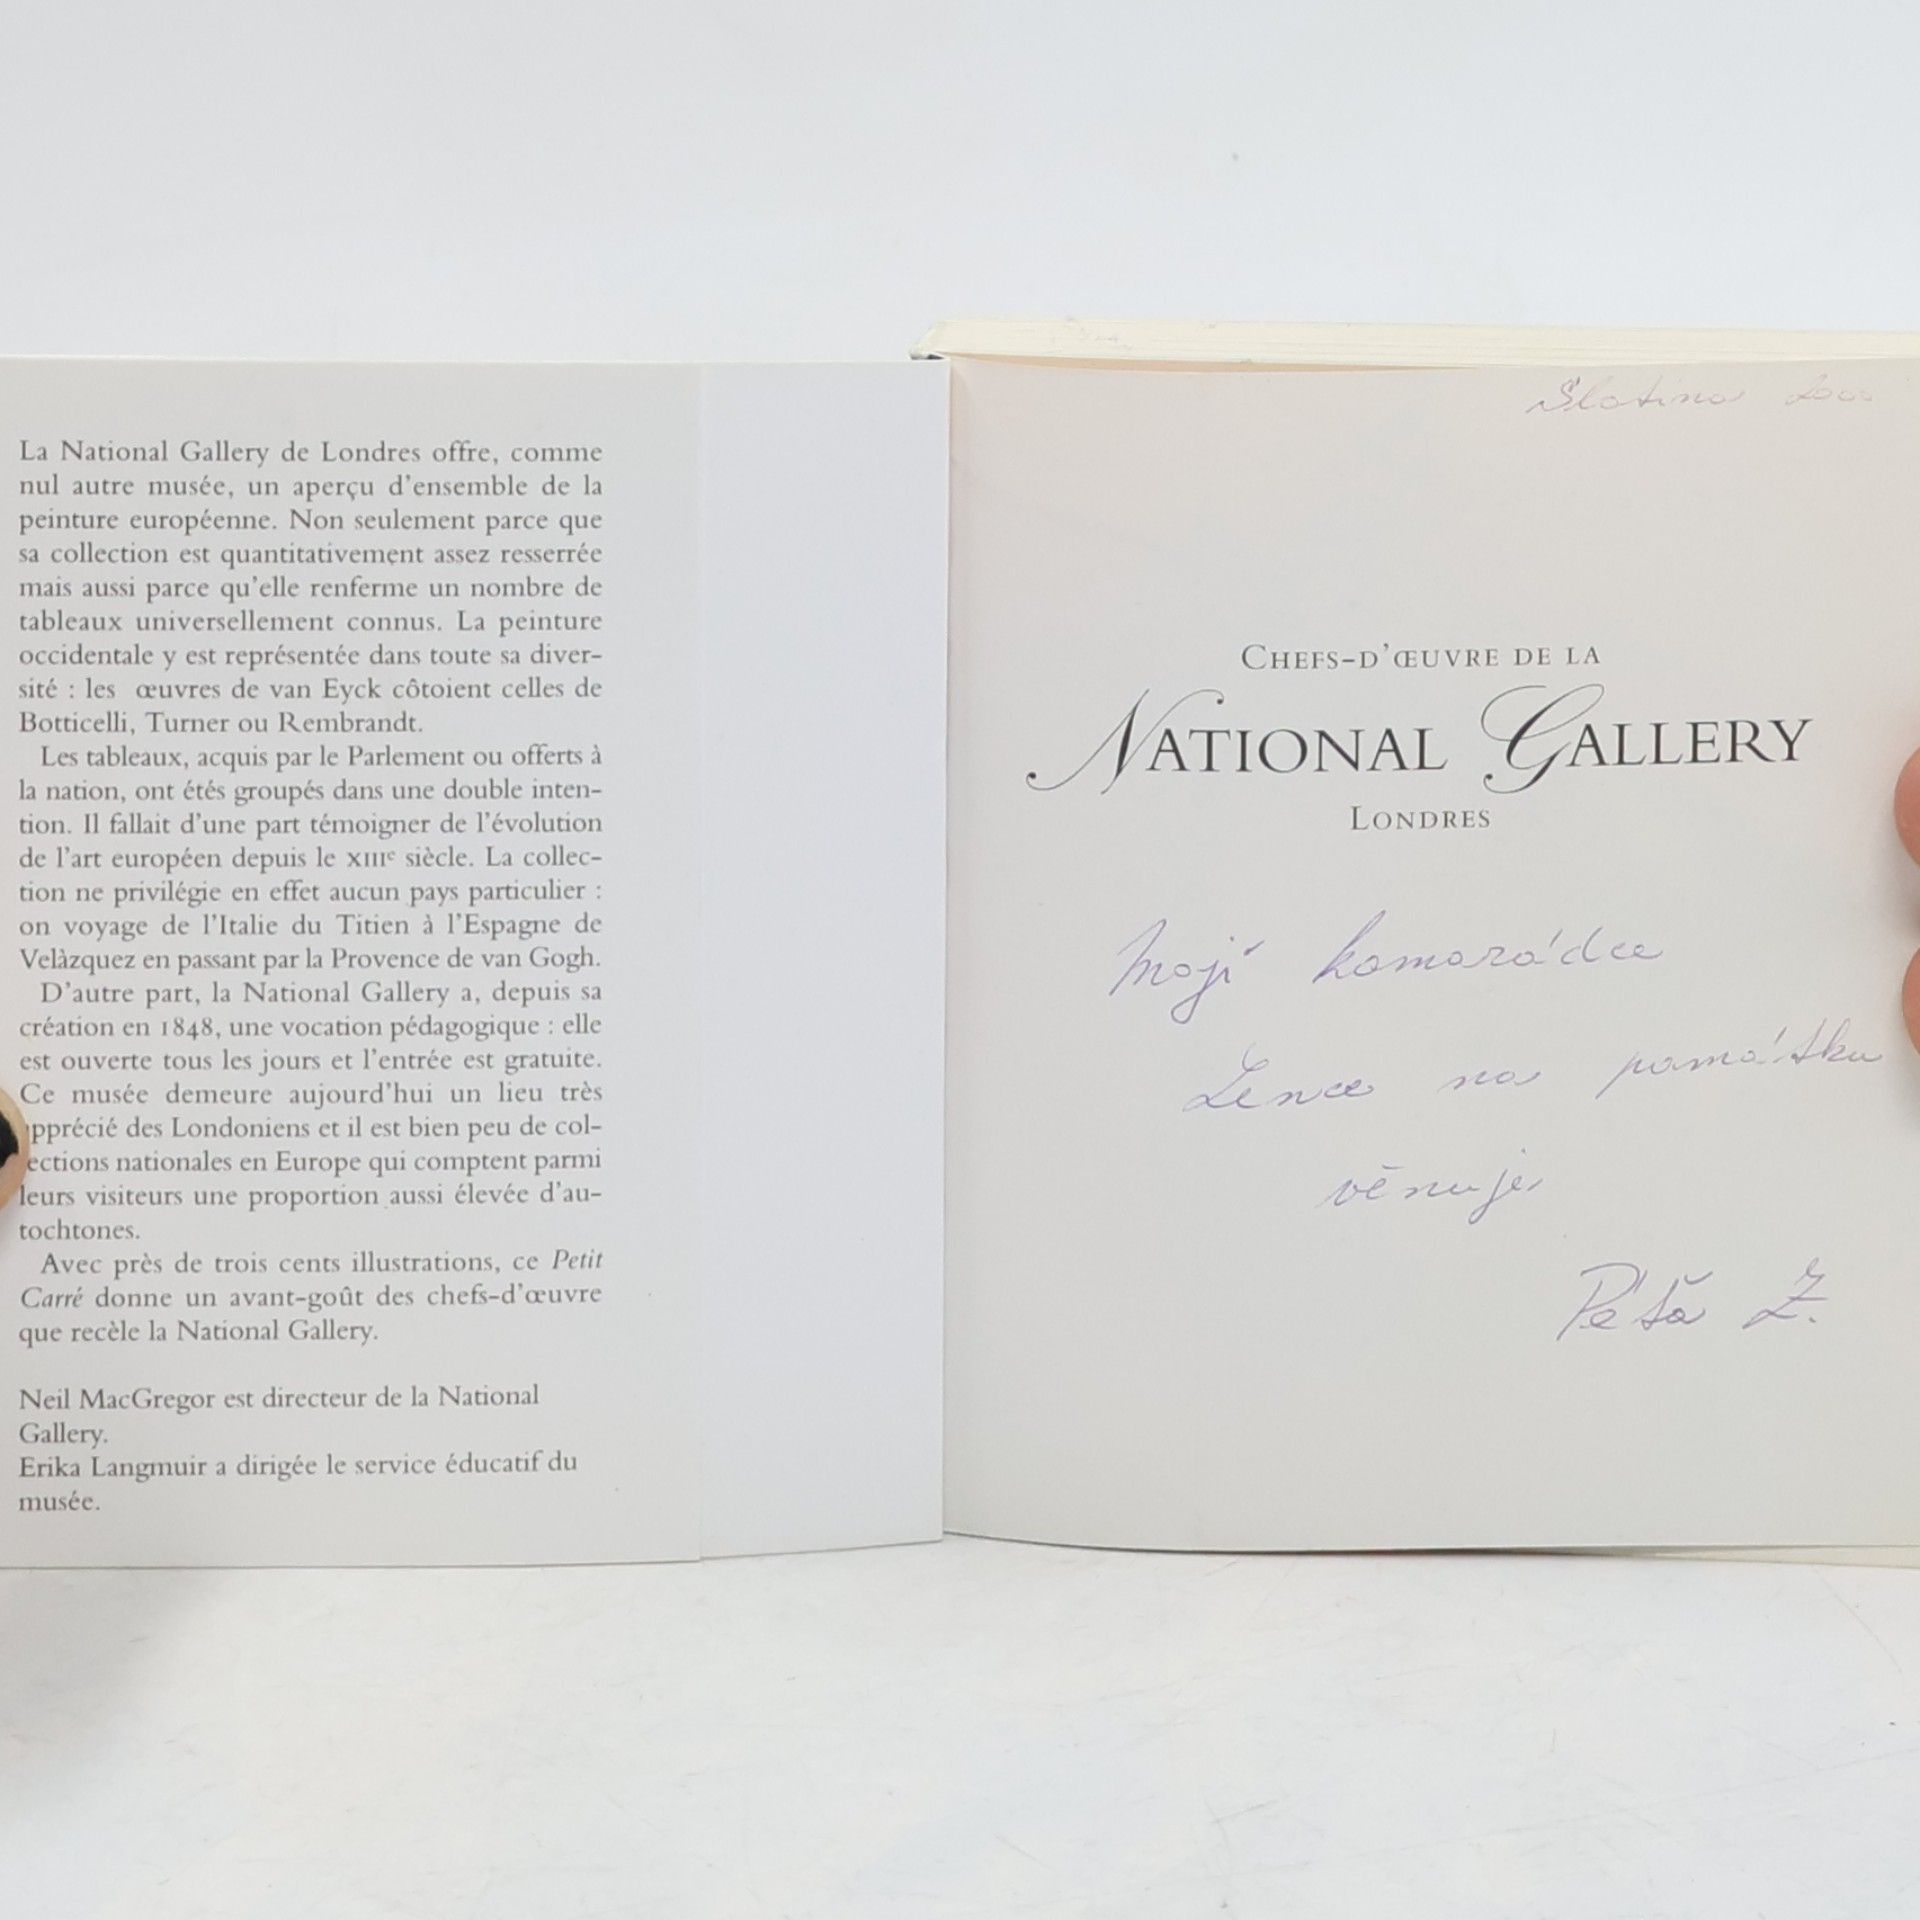 La National Gallery de Londres offre, comme
nul autre musée, un aperçu d'ensemble de la
peinture européenne. Non seulement parce que
sa collection est quantitativement assez resserrée
mais aussi parce qu'elle renferme un nombre de
tableaux universellement connus. La peinture
occidentale y est représentée dans toute sa diver-
sité : les œuvres de van Eyck côtoient celles de
Botticelli, Turner ou Rembrandt.
Les tableaux, acquis par le Parlement ou offerts à
la nation, ont étés groupés dans une double inten-
tion. Il fallait d'une part témoigner de l'évolution
de l'art européen depuis le XIIIe siècle. La collec-
tion ne privilégie en effet aucun pays particulier :
on voyage de l'Italie du Titien à l'Espagne de
Velàzquez en passant par la Provence de van Gogh.
D'autre part, la National Gallery a, depuis sa
création en 1848, une vocation pédagogique : elle
est ouverte tous les jours et l'entrée est gratuite.
Ce musée demeure aujourd'hui un lieu très
apprécié des Londoniens et il est bien peu de col-
lections nationales en Europe qui comptent parmi
leurs visiteurs une proportion aussi élevée d'au-
tochtones.
Avec près de trois cents illustrations, ce Petit
Carré donne un avant-goût des chefs-d'œuvre
que recèle la National Gallery.
Neil MacGregor est directeur de la National
Gallery.
Erika Langmuir a dirigée le service éducatif du
musée.
Slatina 2000
CHEFS-D'ŒUVRE DE LA
NATIONAL GALLERY
LONDRES
Mojí kamarádce
Lence na památku
věnuje
Péťa Z.